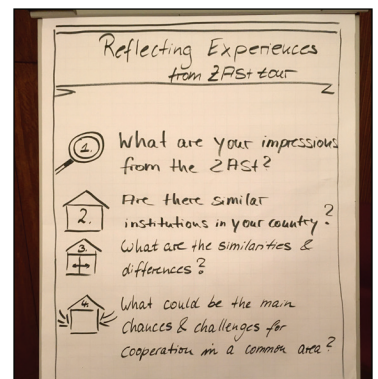 Reflecting Experiences
from ZASt tour
1. What are your impressions
from the ZASt?
2. Are there similar
institutions in your country?
3. What are the similarities &
differences?
4. What could be the main
chances & challenges for
cooperation in a common area?